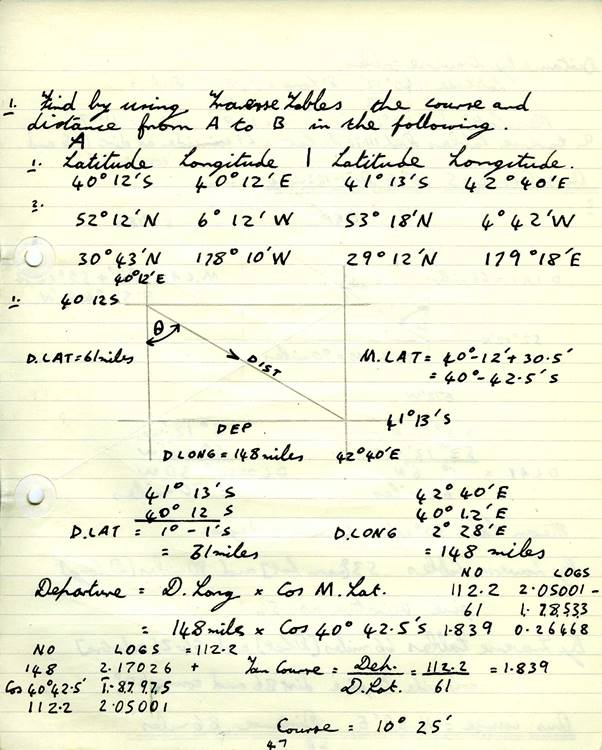 1. Find by using Traverse Tables the course and
distance from A to B in the following.
A
1. Latitude Longitude | Latitude Longitude.
40° 12′ S 40° 12′ E 41° 13′ S 42° 40′ E
2.
52° 12′ N 6° 12′ W 53° 18′ N 4° 42′ W
30° 43′ N 178° 10′ W 29° 12′ N 179° 18′ E
40° 12′ E
1. 40 12 S
θ
D. LAT = 61 miles DIST M. LAT = 40° - 12′ + 30.5′
= 40° - 42.5′ S
41° 13′ S
DEP.
D LONG = 148 miles 42° 40′ E
41° 13′ S 42° 40′ E
40° 12 S 40° 12′ E
D. LAT = 1° - 1′ S D. LONG 2° 28′ E
= 61 miles = 148 miles
NO LOGS
Departure = D. Long × Cos M. Lat. 112.2 2.05001 -
61 1.78533
= 148 miles × Cos 40° 42.5′ S 1.839 0.26468
NO LOGS = 112.2
148 2.17026 + Tan Course = Dep. = 112.2 = 1.839
D. Lat. 61
Cos 40° 42.5′ 1.87975
112.2 2.05001
Course = 10° 25′
47